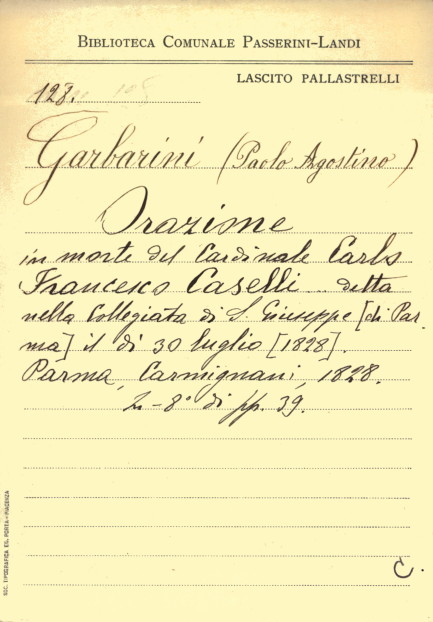 BIBLIOTECA COMUNALE PASSERINI-LANDI
LASCITO PALLASTRELLI
128.
Garbarini (Paolo Agostino)
Orazione
in morte del Cardinale Carlo
Francesco Caselli detta
nella Collegiata di S. Giuseppe [di Par
ma] il dì 30 luglio [1828].
Parma, Carmignani, 1828.
In-8° di pp. 39.
C.
SOC. TIPOGRAFICA ED. PORTA-PIACENZA